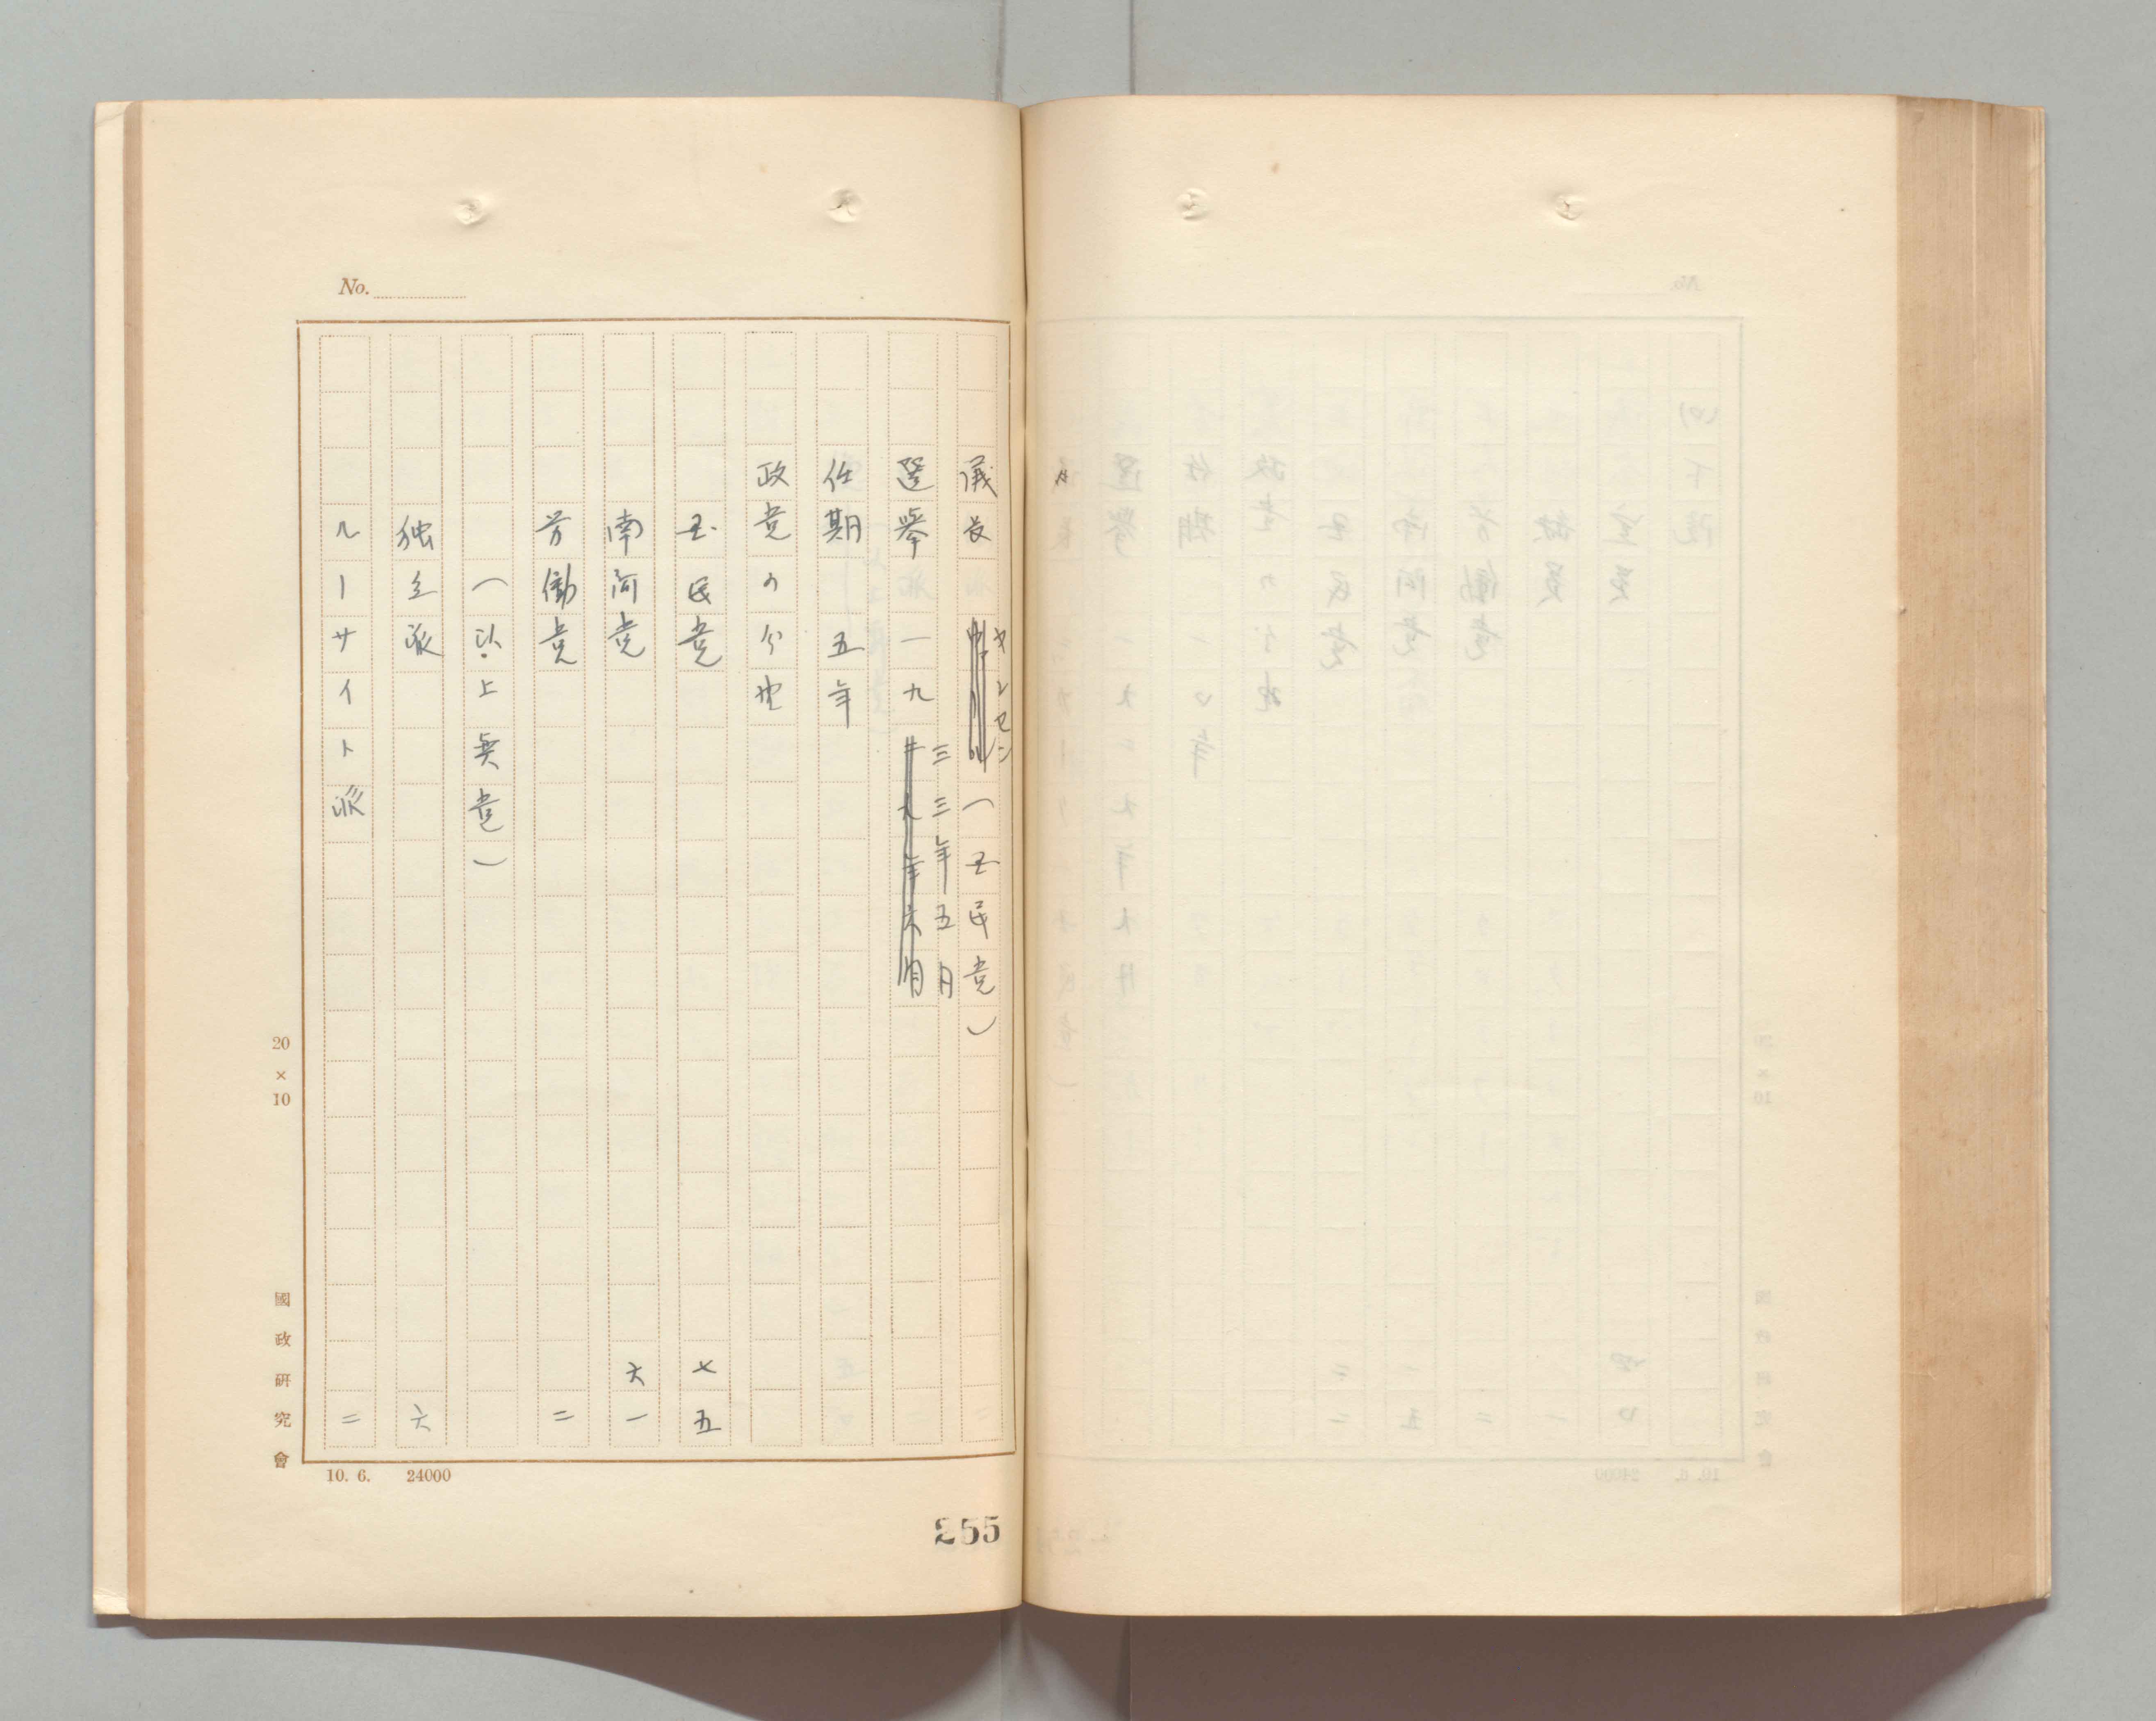 No.
議長 ヤンセン(国民党)
選挙 一九三三年五月
任期 五年
政党の分野
国民党 七五
南阿党 六一
労働党 二
(以上與党)
独立派 六
ルーサイト派 二
20×10
國政研究會
10. 6. 24000
255